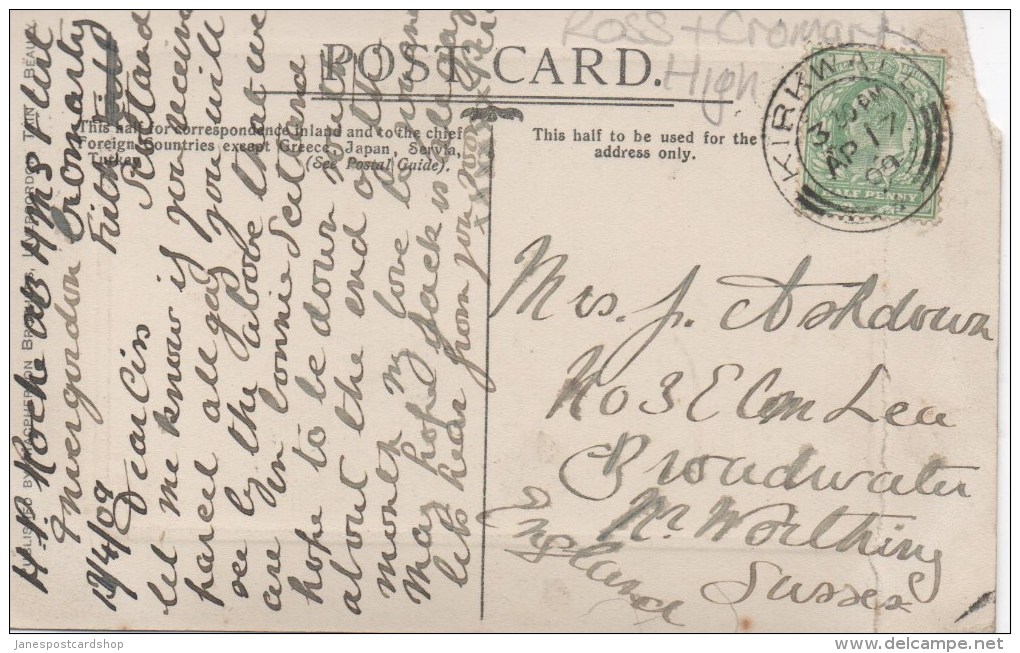 Ross + Cromarty
High
POST CARD.
This half for correspondence inland and to the chief
Foreign Countries except Greece, Japan, Servia,
Turkey. (See Postal Guide).
This half to be used for the
address only.
KIRKWALL
3 30 PM
AP 17
09
HALF PENNY
Mrs. J. Ashdown
No 3 Elm Lea
Broadwater
Nr Worthing
Sussex
England
HMS
Invergordon Cromarty
Firth Scotland
/4/09 Darlin
let me know if you receive
parcel all gay you will
see by the above that we
are in bonnie Scotland
hope to be down South
about the end of the
month my love to
May hope Jack is
lets hear from you soon
PUBLISHED BY MACPHERSON BROTHERS, INVERGORDON, TAIN, BEAULY
janespostcardshop
delcampe.net